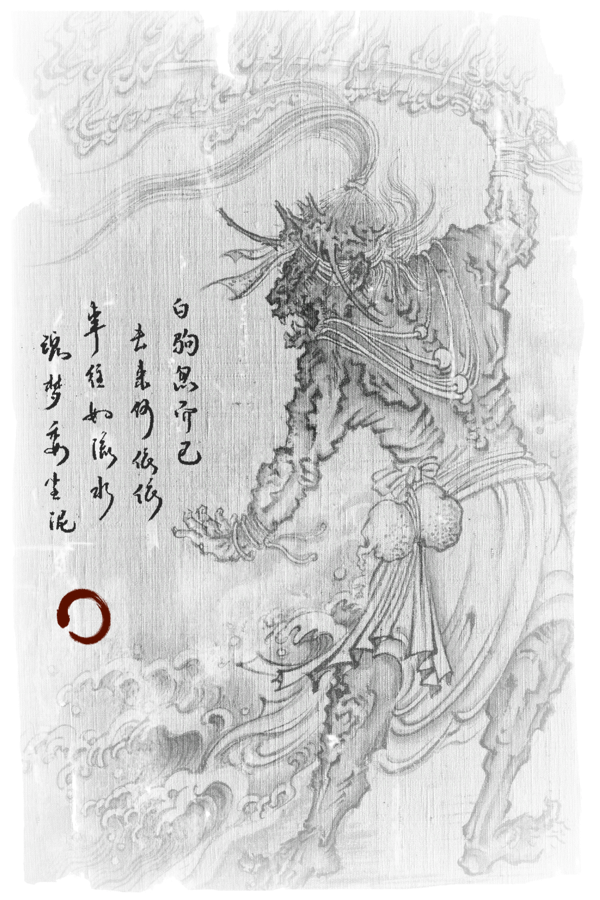 白驹忽而已
去来何依依
年往如流水
魂梦委尘泥